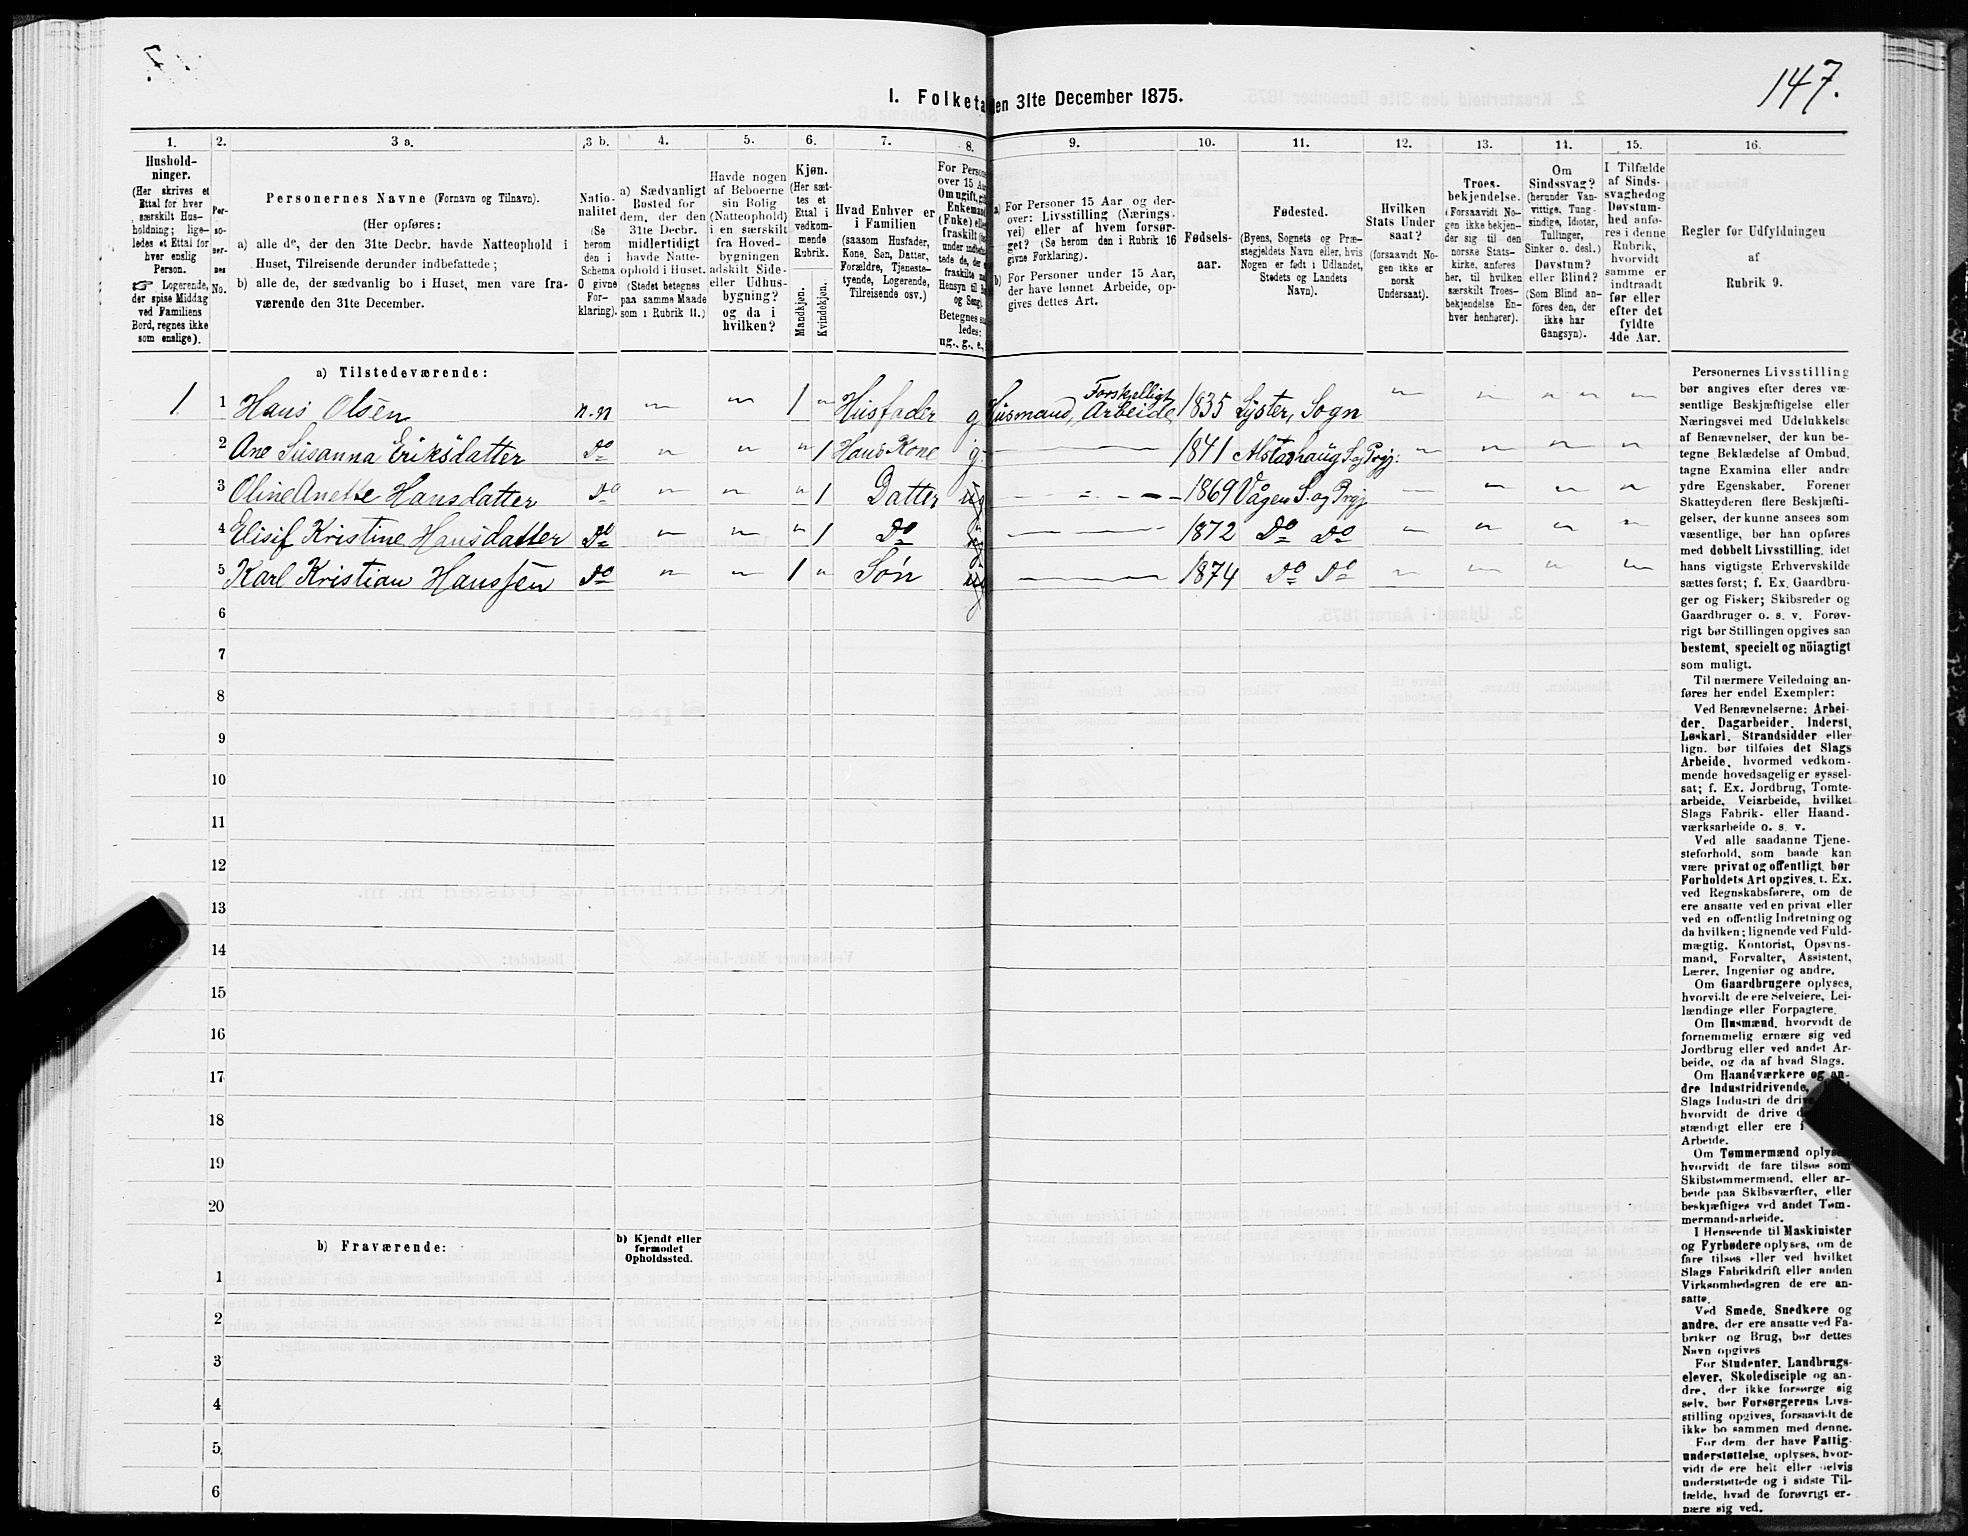 147.
I. Folketa
en 31te December 1875.
1.
Hushold-
ninger.
(Her skrives et
Ettal for hver
særskilt Hus-
holdning; lige-
ledes et Ettal for
hver enslig
Person.
☞ Logerende,
der spise Middag
ved Familiens
Bord, regnes ikke
som enslige).
2.
Per-
so-
ner-
nes
No.
3 a.
Personernes Navne (Fornavn og Tilnavn).
(Her opføres:
a) alle de, der den 31te Decbr. havde Natteophold i
Huset, Tilreisende derunder indbefattede;
b) alle de, der sædvanlig bo i Huset, men vare fra-
værende den 31te December.
3 b.
Natio-
nalitet
(Se
herom
den i
Schema
O givne
For-
klaring).
4.
a) Sædvanligt
Bosted for
dem, der den
31te Decbr.
midlertidigt
havde Natte-
ophold i Huset.
(Stedet betegnes
paa samme Maade
som i Rubrik 11.)
5.
Havde nogen
af Beboerne
sin Bolig
(Natteophold)
i en særskilt
fra Hoved-
bygningen
adskilt Side-
eller Udhus-
bygning?
og da i
hvilken?
6.
Kjøn.
(Her sæt-
tes et
Ettal i
vedkom-
mende
Rubrik.
Mandkjøn.
Kvindekjøn.
7.
Hvad Enhver er
i Familien
(saasom Husfader,
Kone, Søn, Datter,
Forældre, Tjeneste-
tyende, Logerende,
Tilreisende osv.)
8.
For Person
over 15 Aa
Om ugift, gi
Enkeman
(Enke) elle
fraskilt (se
under indbefat
tede de, der
fraskilte
Hensyn til b
og Seng).
Betegnes sa
ledes:
ug., g., e.,
9.
a) For Personer 15 Aar og der-
over: Livsstilling (Nærings-
vei) eller af hvem forsør-
get? (Se herom den i Rubrik 16
givne Forklaring).
b) For Personer under 15 Aar,
der have lønnet Arbeide, op-
gives dettes Art.
10.
Fødsels-
aar.
11.
Fødested.
(Byens, Sognets og Præ-
stegjeldets Navn eller, hvis
Nogen er født i Udlandet,
Stedets og Landets
Navn).
12.
Hvilken
Stats Under
saat?
(forsaavidt No-
gen ikke er
norsk
Undersaat).
13.
Troes-
bekjendelse.
(Forsaavidt No-
gen ikke bekjen-
der sig til den
norske Stats-
kirke, anføres
her, til hvilken
særskilt Troes-
bekjendelse En-
hver henhører).
14.
Om
Sindssvag?
(herunder Van-
vittige, Tung-
sindige, Idioter,
Tullinger,
Sinker o. desl.)
Døvstum?
eller Blind?
(Som Blind an-
føres den, der
ikke har
Gangsyn).
15.
I Tilfælde
af Sinds-
svaghed og
Døvstum-
hed anfø-
res i denne
Rubrik,
hvorvidt
samme er
indtraadt
før eller
efter det
fyldte
4de Aar.
16.
Regler for Udfyldningen
af
Rubrik 9.
a) Tilstedeværende:
1 1 Hans Olsen n.n „ „ 1 „ Husfader g Husmand, Forskjelligt Arbeide 1835 Lyster, Sogn „ „ „ „ „
2 Ane Susanna Eriksdatter Do „ „ „ 1 Hans Kone g. 1841 Alstahaug S. og Prgj: „ „ „ „
3 Oline Anette Hansdatter Do „ „ „ 1 Datter ug 1869 Vågen S. og Prgj „ „ „
4 Elisif Kristine Hansdatter Do „ „ „ 1 Do 1872 Do Do „ „ „ „
5 Karl Kristian Hanssen Do „ „ 1 „ Søn ug 1874 Do Do „ „ „ „
6
7
8
9
10
11
12
13
14
15
16
17
18
19
20
b) Fraværende:
b) Kjendt eller
formodet
Opholdssted.
1
2
3
4
5
6
Personernes Livsstilling
bør angives efter deres væ-
sentlige Beskjæftigelse eller
Næringsvei med Udelukkelse
af Benævnelser, der kun be-
tegne Beklædelse af Ombud,
tagne Examina eller andre
ydre Egenskaber. Forener
Skatteyderen flere Beskjæfti-
gelser, der kunne ansees som
væsentlige, bør han opføres
med dobbelt Livsstilling, idet
hans vigtigste Erhvervskilde
sættes først; f. Ex. Gaardbru-
ger og Fisker; Skibsreder og
Gaardbruger o. s. v. Forøv-
rigt bør Stillingen opgives saa
bestemt, specielt og nöiagtigt
som muligt.
Til nærmere Veiledning an-
føres her endel Exempler:
Ved Benævnelserne: Arbei-
der, Dagarbeider, Inderst,
Løskarl, Strandsidder eller
lign. bør tilføies det Slags
Arbeide, hvormed vedkom-
mende hovedsagelig er syssel-
sat; f. Ex. Jordbrug, Tomte-
arbeide, Veiarbeide, hvilket
Slags Fabrik- eller Haand-
værksarbeide o. s. v.
Ved alle saadanne Tjene-
steforhold, som baade kan
være privat og offentligt, bør
Forholdets Art opgives, t. Ex.
ved Regnskabsførere, om de
ere ansatte ved en privat eller
ved en offentlig Indretning og
da hvilken; lignende ved Fuld-
mægtig, Kontorist, Opsyns-
mand, Forvalter, Assistent,
Lærer, Ingeniør og andre.
Om Gaardbrugere oplyses,
hvorvidt de ere Selveiere, Lei-
lændinge eller Forpagtere.
Om Husmænd, hvorvidt de
fornemmelig ernære sig ved
Jordbrug eller ved andet Ar-
beide, og da af hvad Slags.
Om Haandværkere og an-
dre Industridrivende,
Slags Industri de drive
hvorvidt de drive
stændigt eller ere i
Arbeide.
Om Tømmermænd oplyses
hvorvidt de fare tilsøs som
Skibstømmermænd, eller ar-
beide paa Skibsværfter, eller
beskjæftiges ved andet Tøm-
mermandsarbeide.
I Henseende til Maskinister
og Fyrbødere oplyses, om de
fare tilsøs eller ved hvilket
Slags Fabrikdrift eller anden
Virksomhedsgren de ere an-
satte.
Ved Smede, Snedkere og
andre, der ere ansatte ved Fa-
briker og Brug, bør dettes
Navn opgives
For Studenter, Landbrugs-
elever, Skoledisciple og an-
dre, der ikke forsørge sig
selv, bør Forsørgerens Livs-
stilling opgives, forsaavidt de
ikke bo sammen med denne.
For dem, der have Fattig-
understøttelse, oplyses, hvor-
vidt de ere helt eller delvis
understøttede og i sidste Til-
fælde, hvad de forøvrigt er-
nære sig ved.